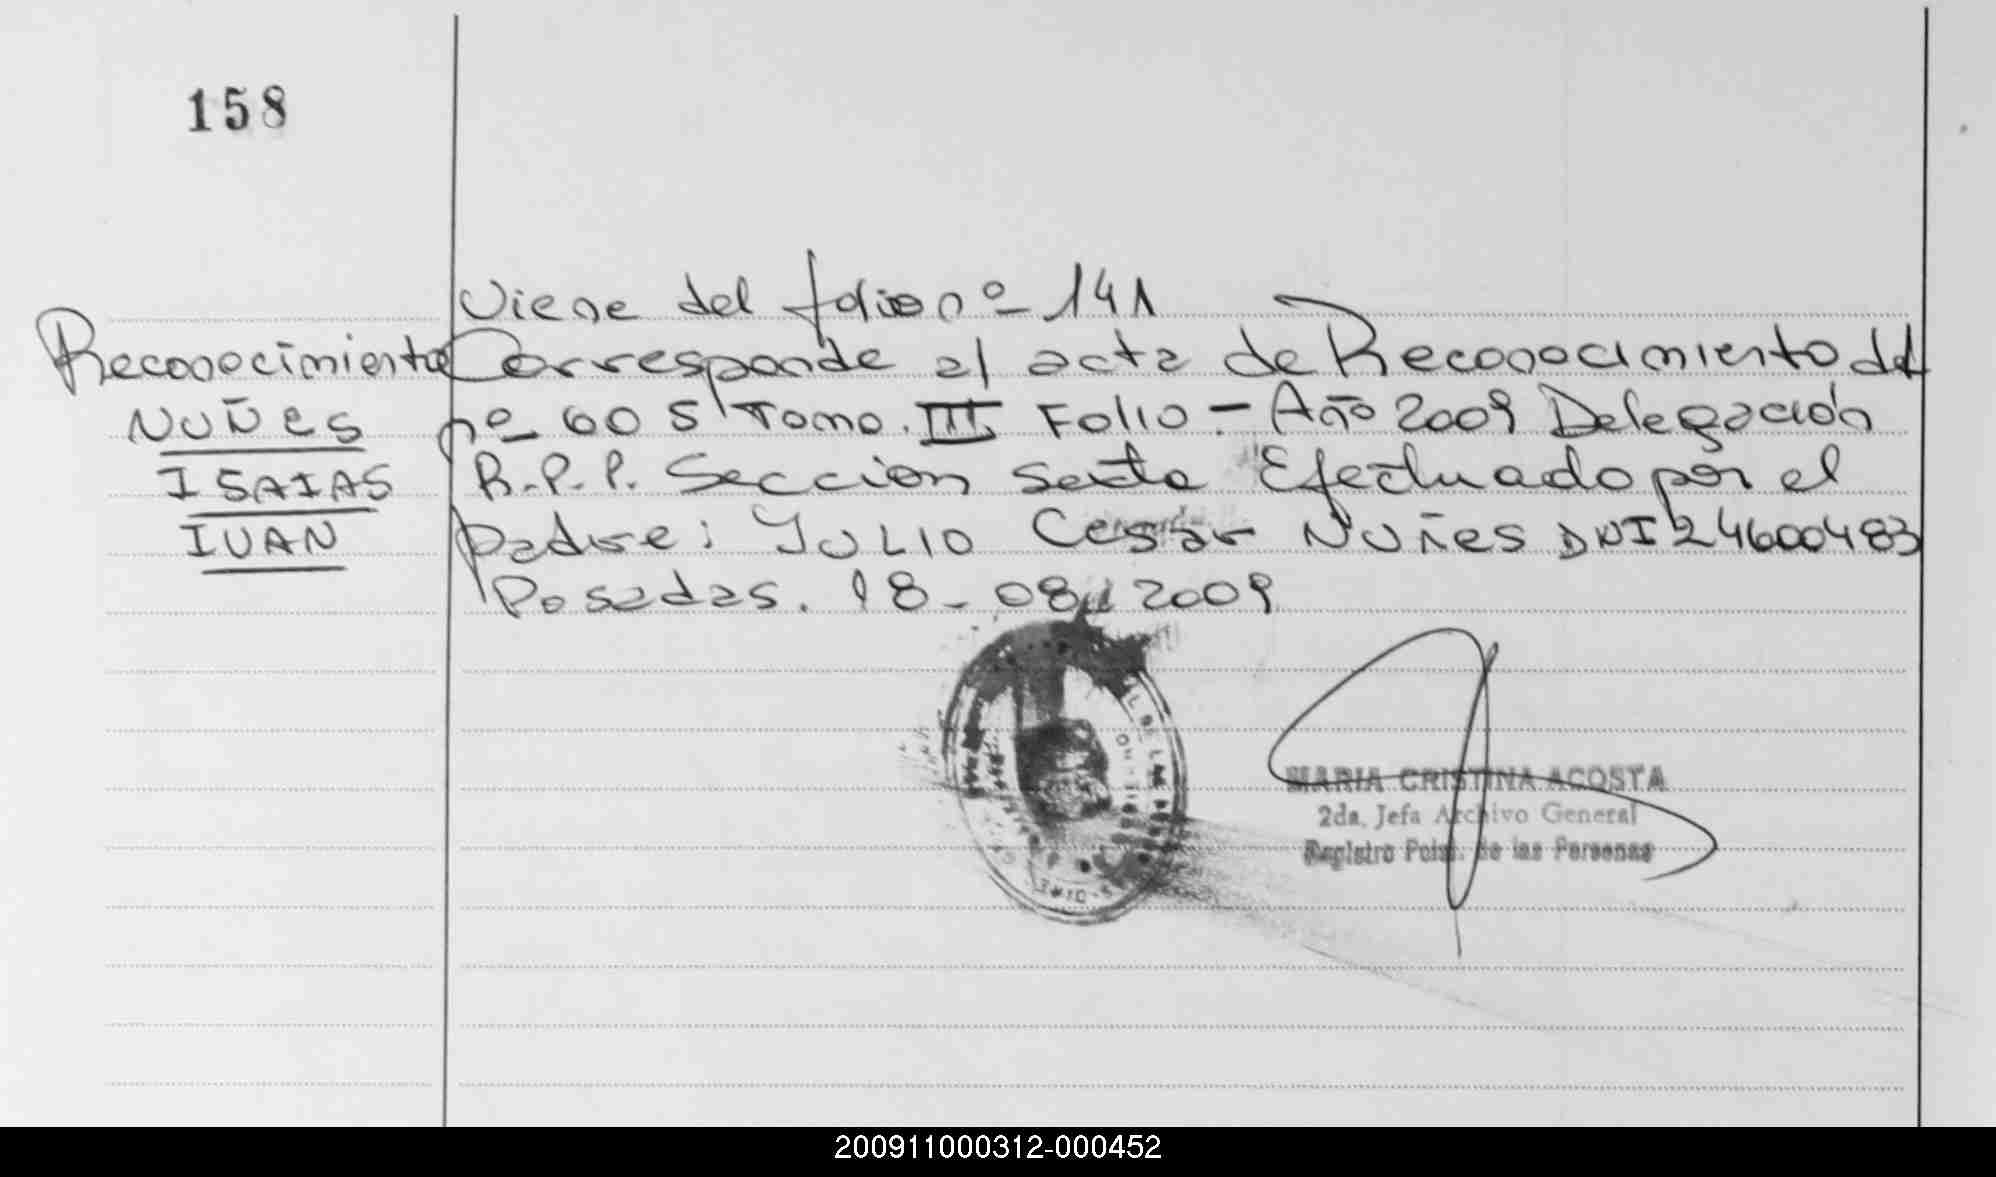 158
Viene del folio nº 141
Reconocimiento
Corresponde al acta de Reconocimiento del
NUÑES
nº 605 Tomo. III Folio - Año 2009 Delegación
ISAIAS
R.P.P. Seccion Sexta Efectuado por el
IVAN
padre: JULIO Cesar NUÑes DNI 24600483
Posadas. 18-08-2009
MARIA CRISTINA ACOSTA
2da. Jefa Archivo General
Registro Pcial. de las Personas
200911000312-000452